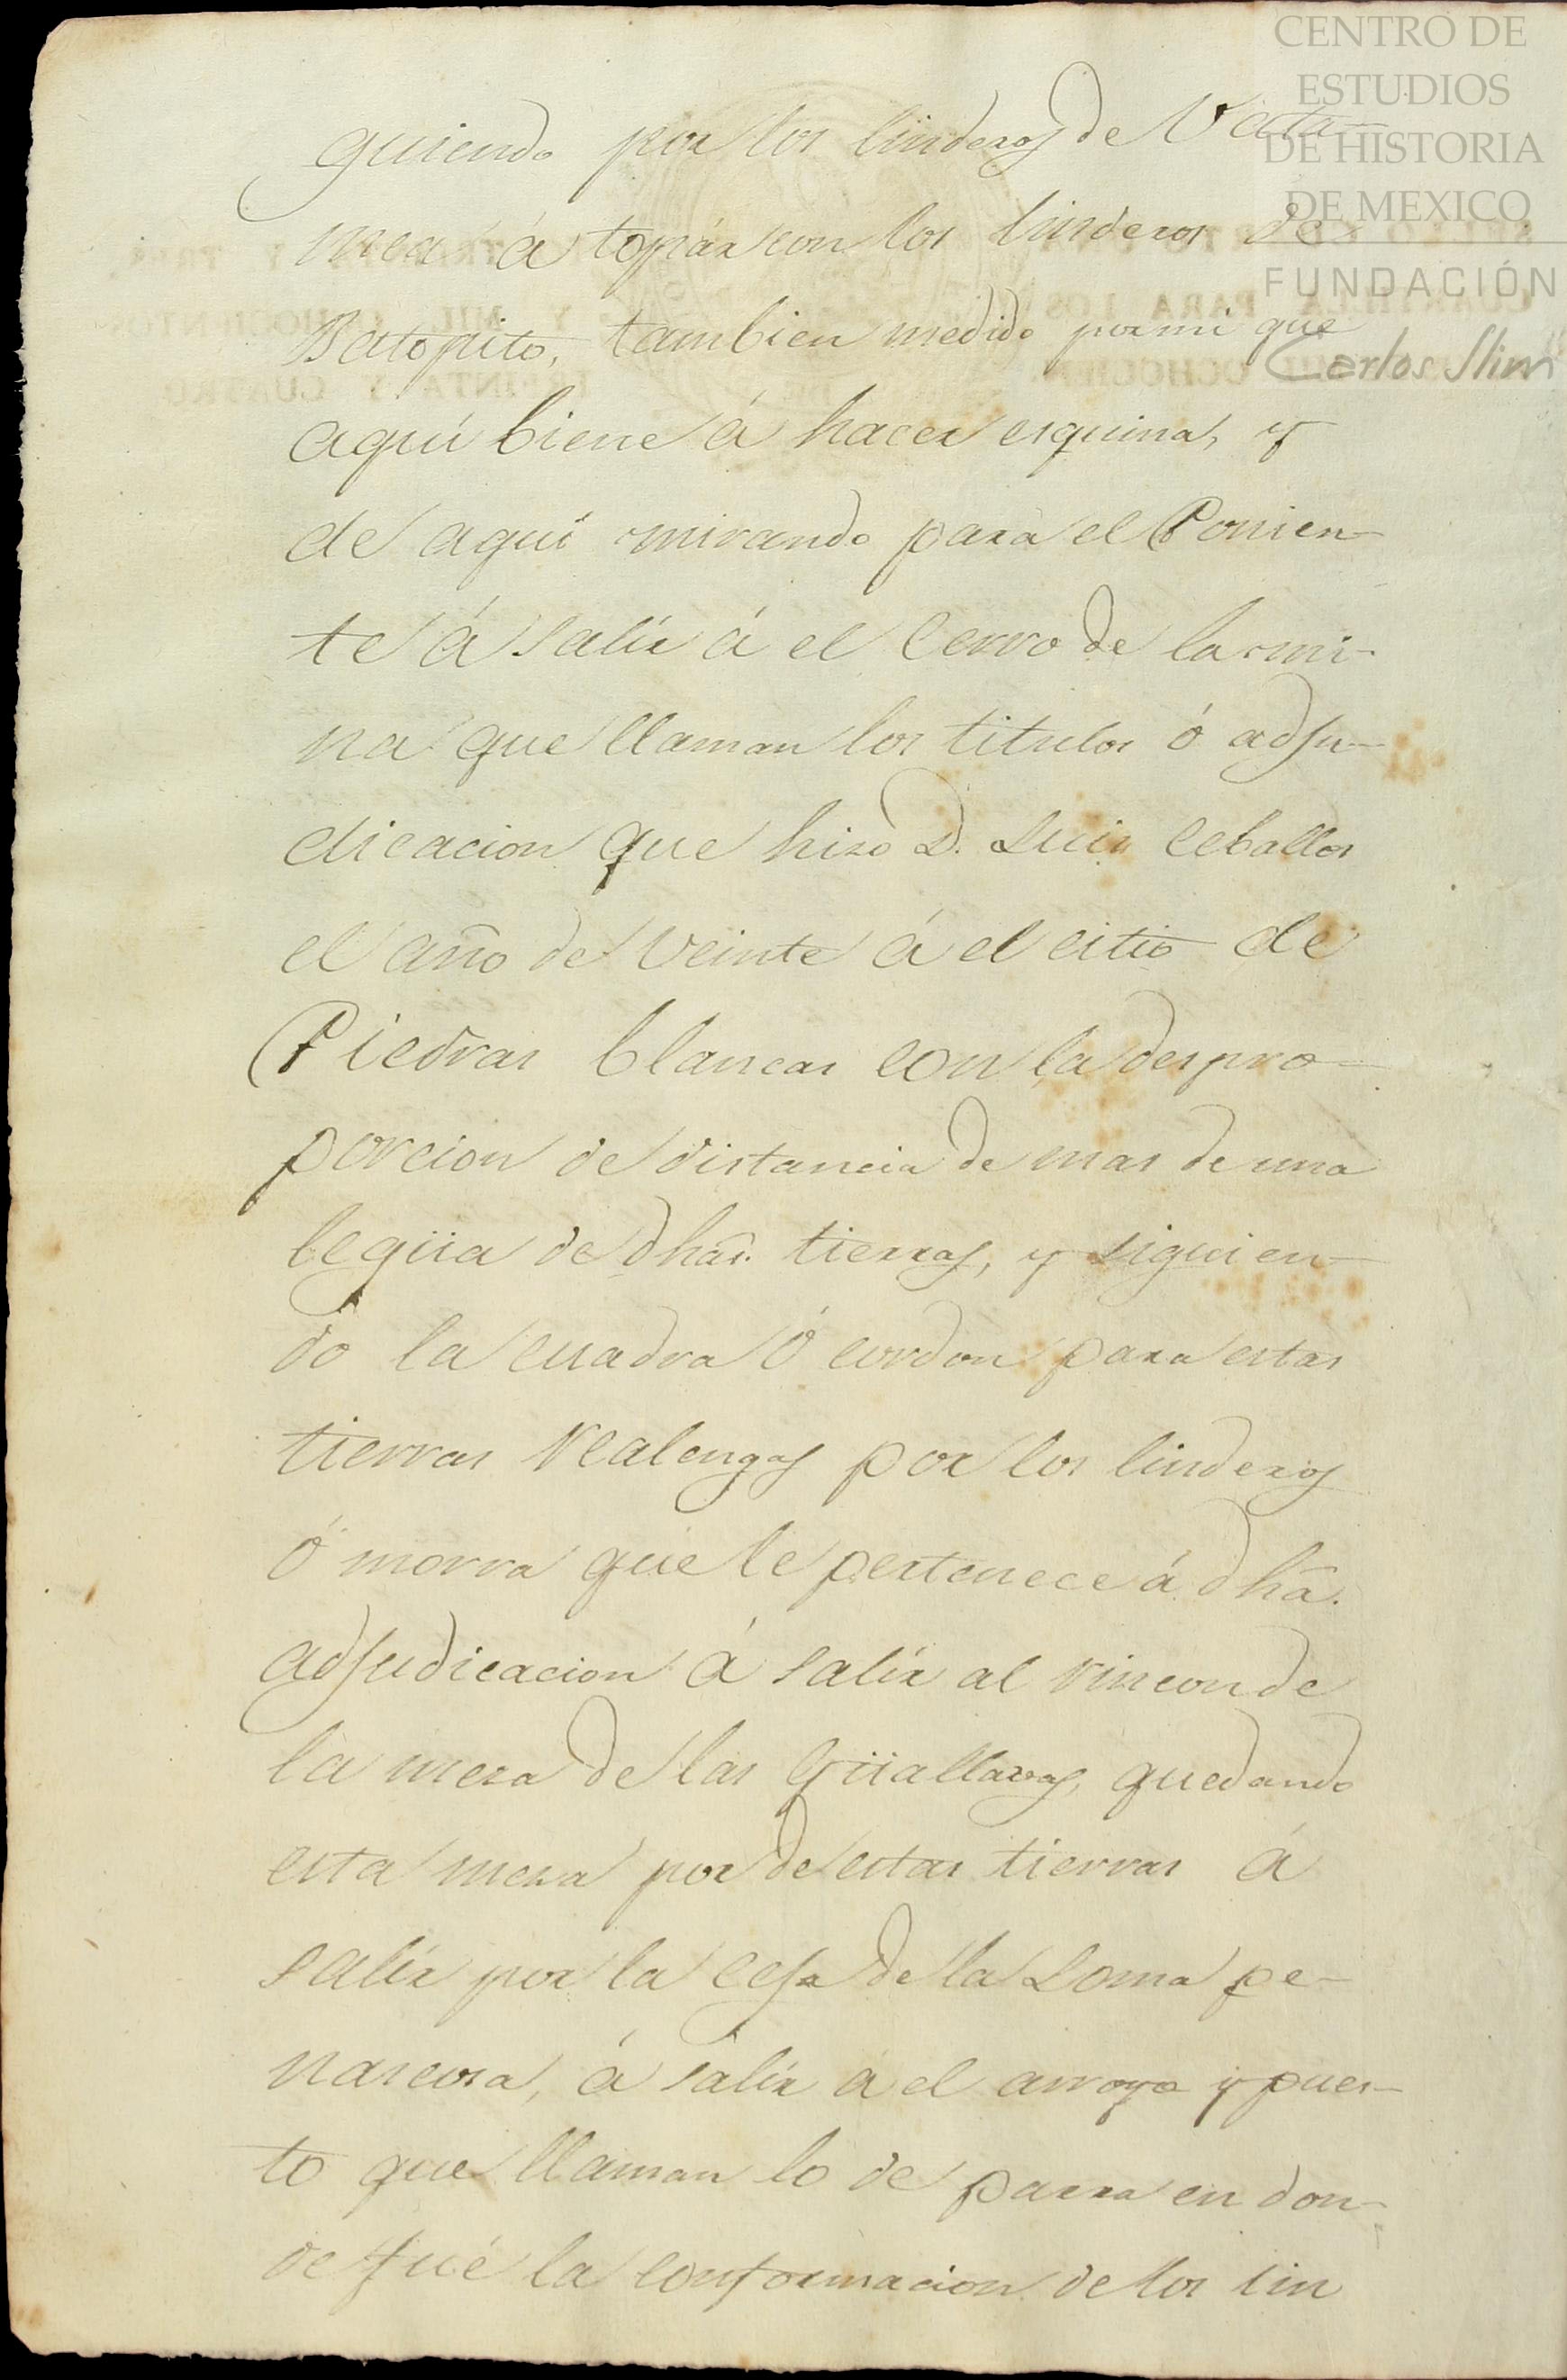 CENTRO DE
ESTUDIOS
DE HISTORIA
DE MEXICO
FUNDACIÓN
Carlos Slim
guiendo por los linderos de
nica á topár con los linderos de
Batopito, tambien medido por mi que
aquí biene á hacer esquina, y
de aquí mirando para el Ponien-
te á salír á el Cerro de la mi-
na que llaman los titulos ó adju-
dicacion que hiso D. Luis Ceballos
el año de veinte á el citio de
Piedras blancas con la despro-
porcion de distancia de mas de una
legüa de dhas. tierras, y siguien-
do la cuadra ó cordon para estas
tierras realengas por los linderos
ó morra que le pertenece á dha.
adjudicacion á salír al rincon de
la mesa de las Güallavas, quedando
esta mesa por de estas tierras á
salír por la ceja de la Loma pe-
nascosa, á salír á el arroyo y puer-
to que llaman lo de parra en don-
de fué la conformacion de los lin